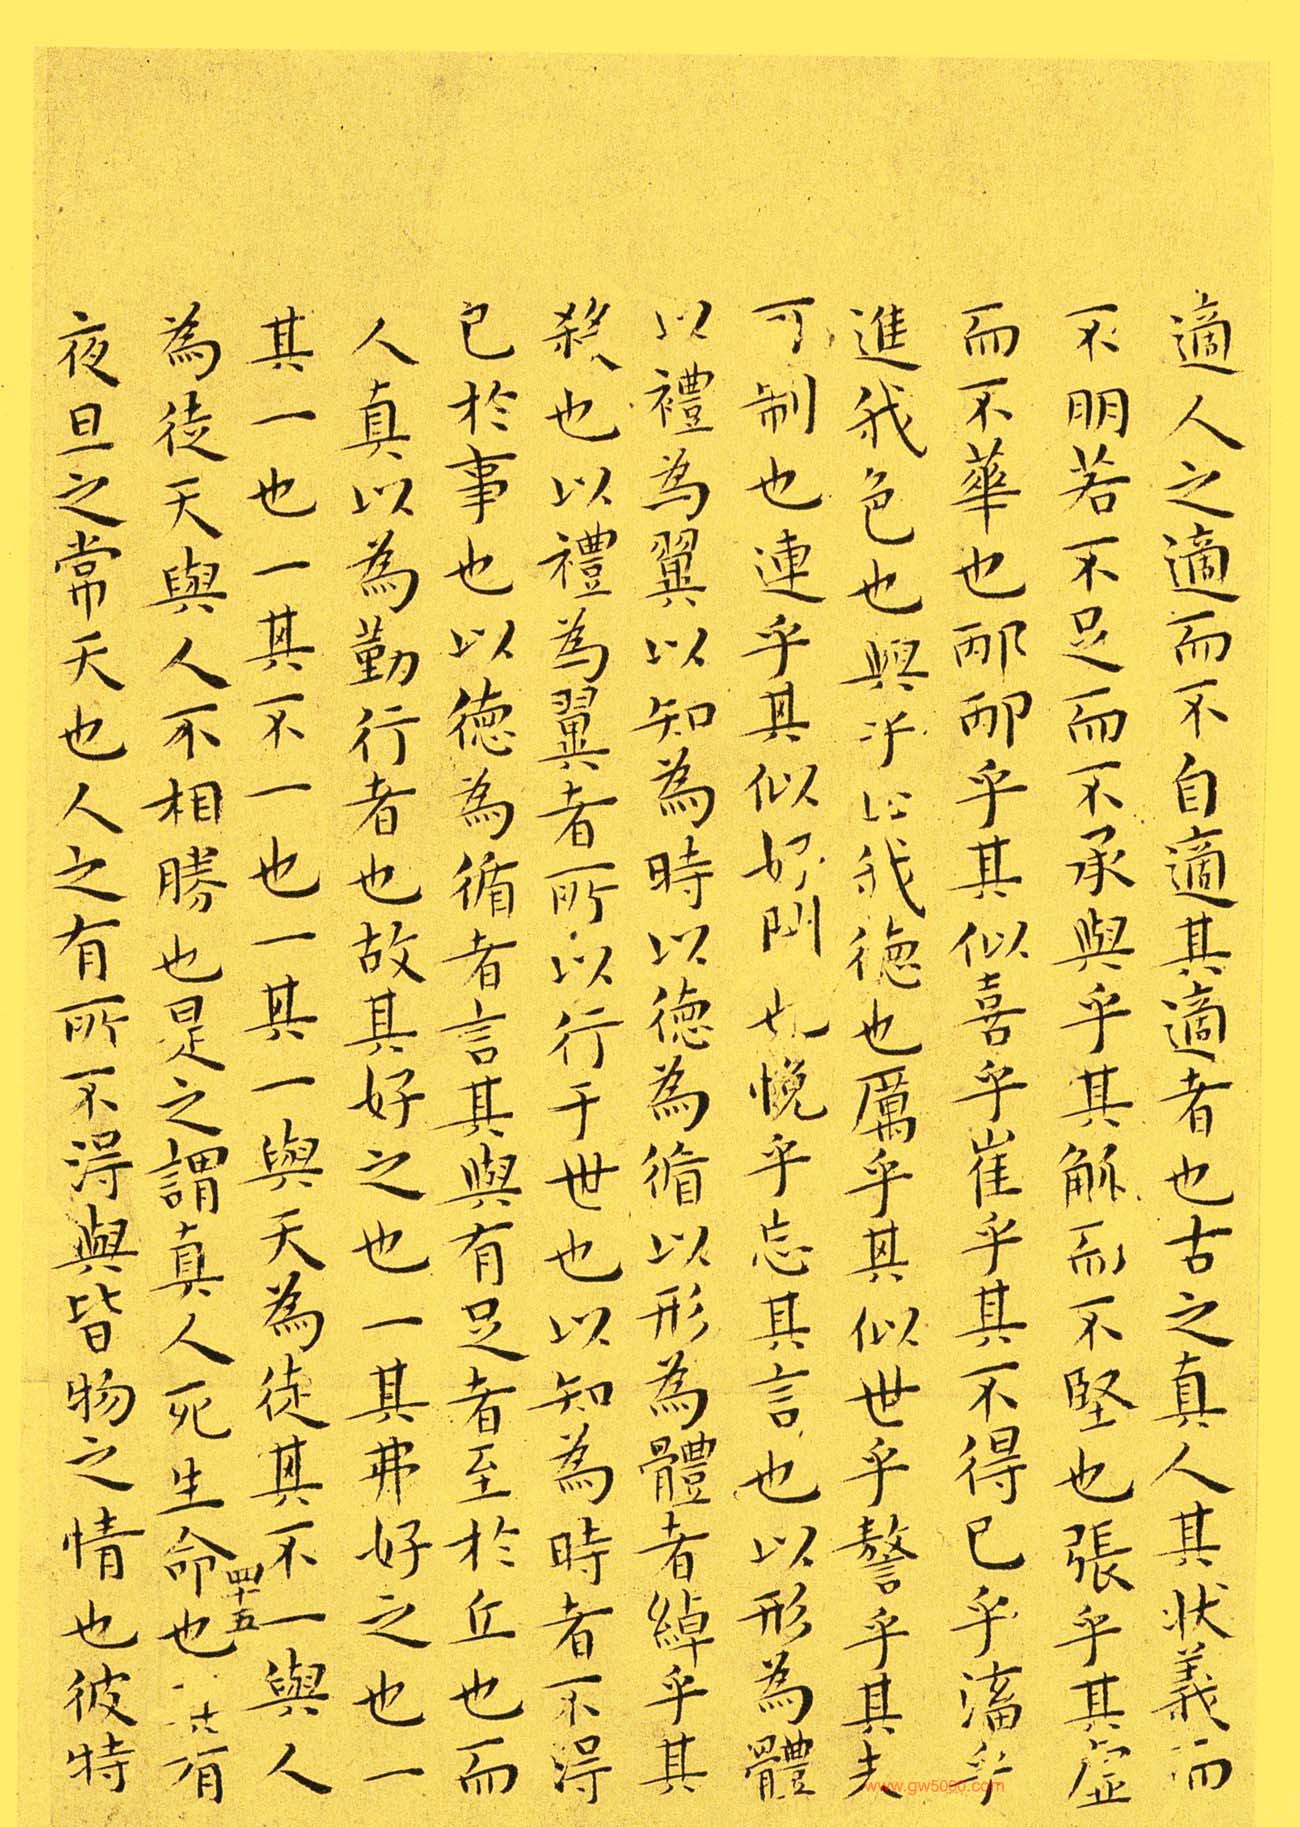 適人之適而不自適其適者也古之真人其状義而
不明若不足而不承與乎其觚而不堅也張乎其虛
而不華也邴邴乎其似喜乎崔乎其不得已乎滀乎
進我色也與乎止我德也厲乎其似世乎謷乎其未
可制也連乎其似好閇也悗乎忘其言也以形為體
以禮為翼以知為時以德為循以形為體者綽乎其
殺也以禮為翼者所以行于世也以知為時者不得
已於事也以德為循者言其與有足者至於丘也而
人真以為勤行者也故其好之也一其弗好之也一
其一也一其不一也一其一與天為徒其不一與人
為徒天與人不相勝也是之謂真人死生命也其有
夜旦之常天也人之有所不得與皆物之情也彼特
四十五
www.gw5000.com